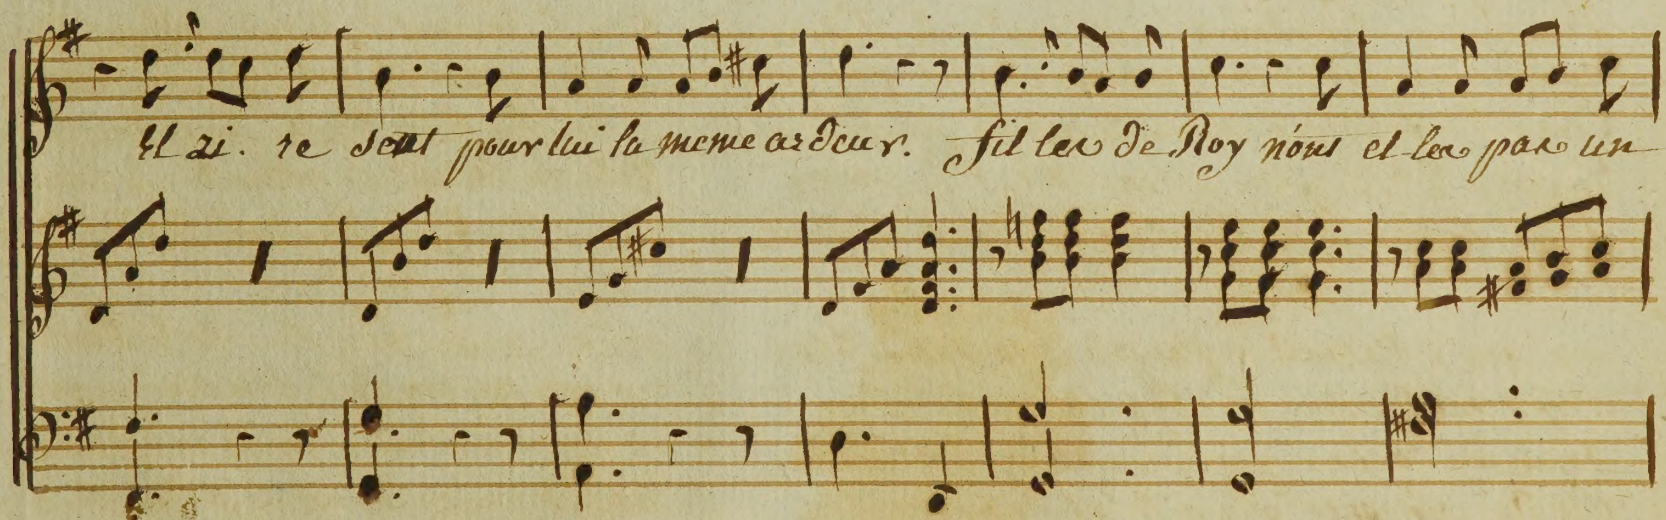 El zi. re sent pour lui la meme ardeur. filles de Roy n'ont elles pas un